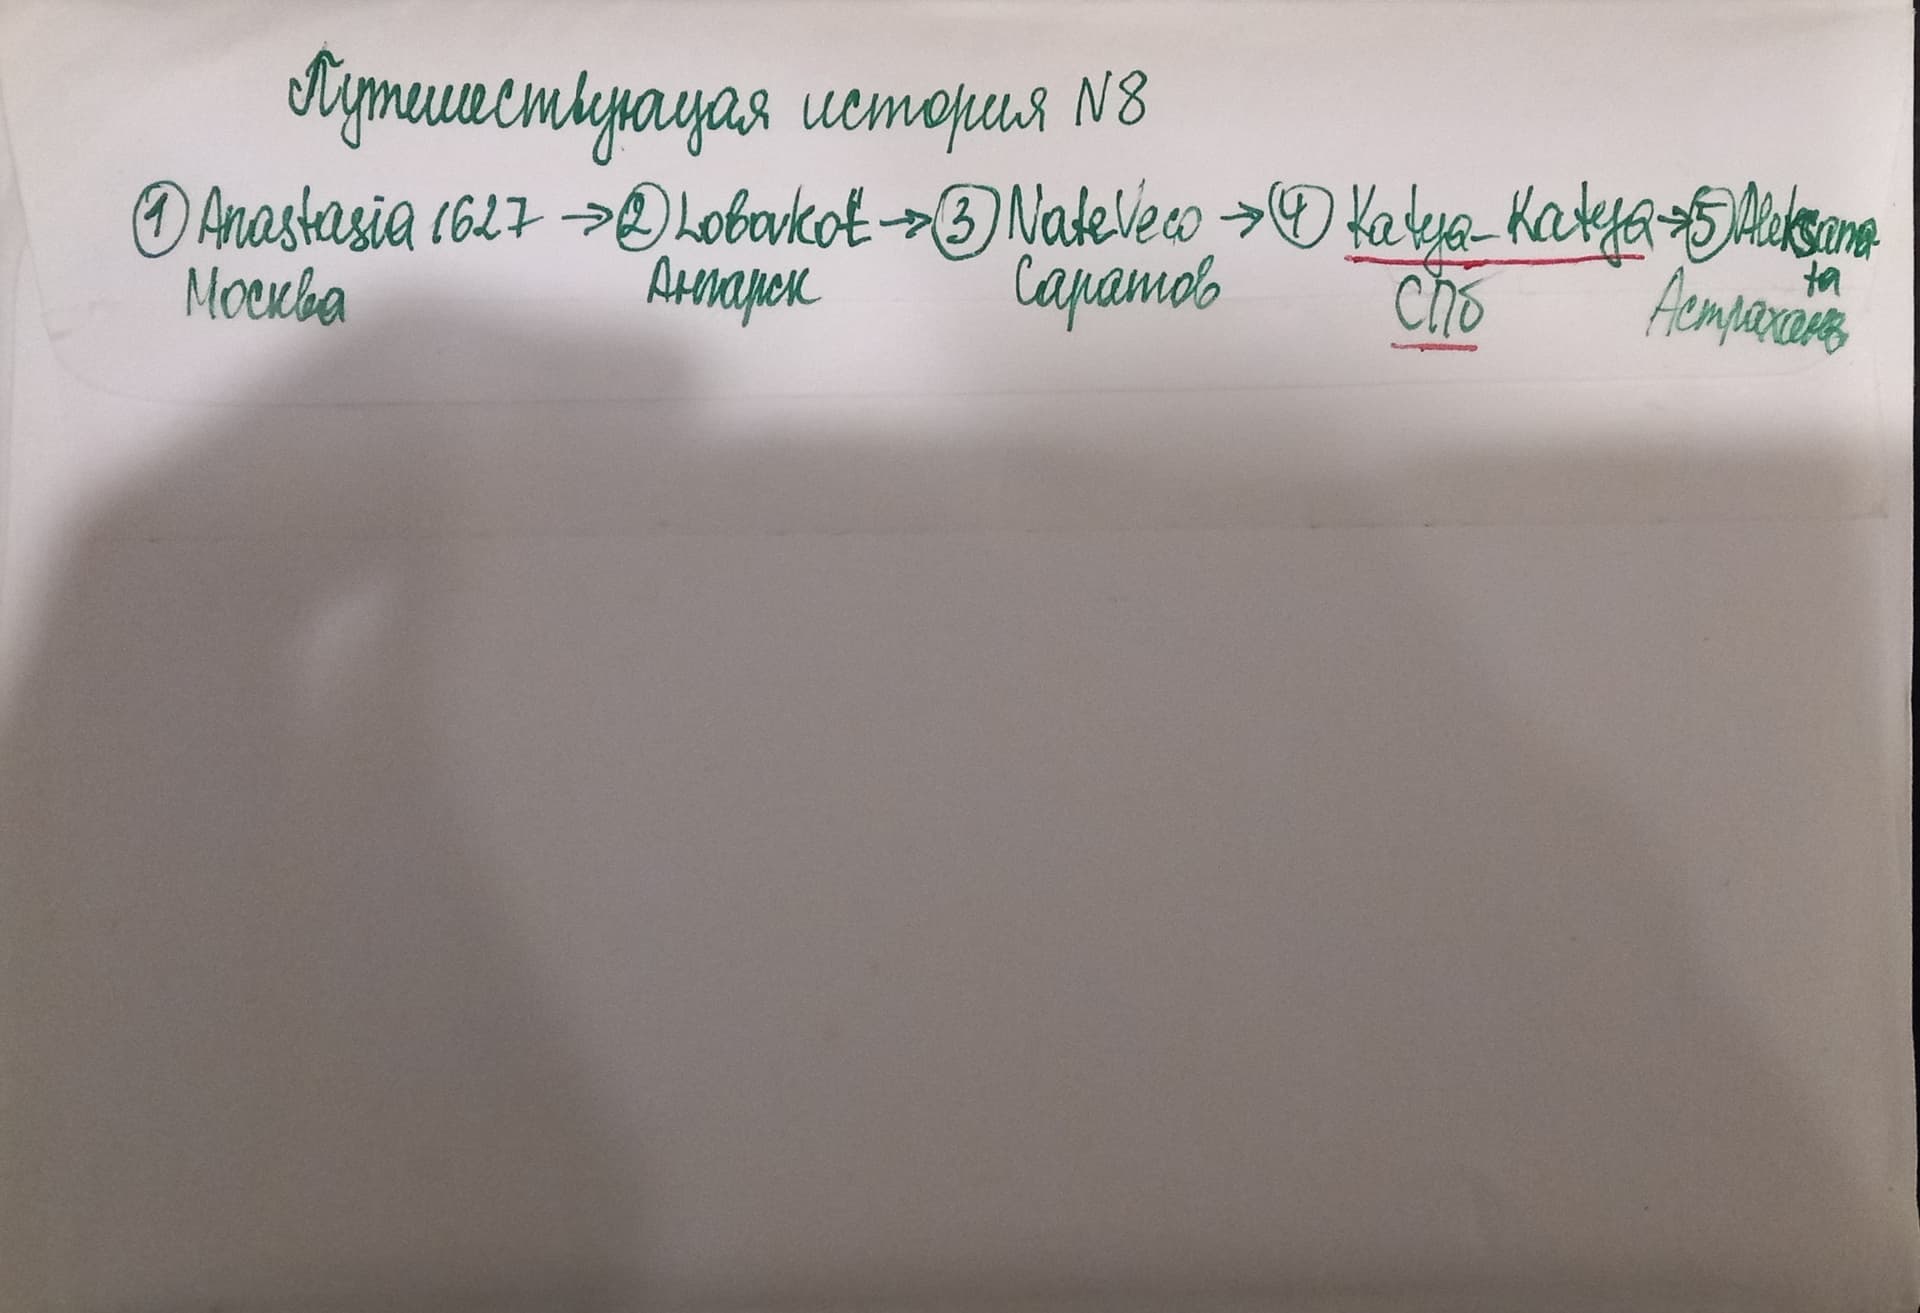 Путешествующая история N8
① Anastasia 1627 → ② Lobavkot → ③ NateVeco → ④ Katya-Katya → ⑤ Aleksana-
ta
Москва Ангарск Саратов СПб Астрахань